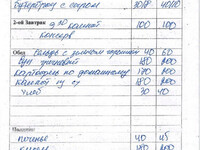 Бутерброд с сыром 30/8 40/10
2-ой Завтрак 9 30 компот 100 100
консерв
Обед Салат с зеленым горошком 40 60
Суп 180 200
Картофель по домашнему 170 200
Компот из с/ф 180 200
Хлеб 30 40
Полдник
печенье 40 45
180 200